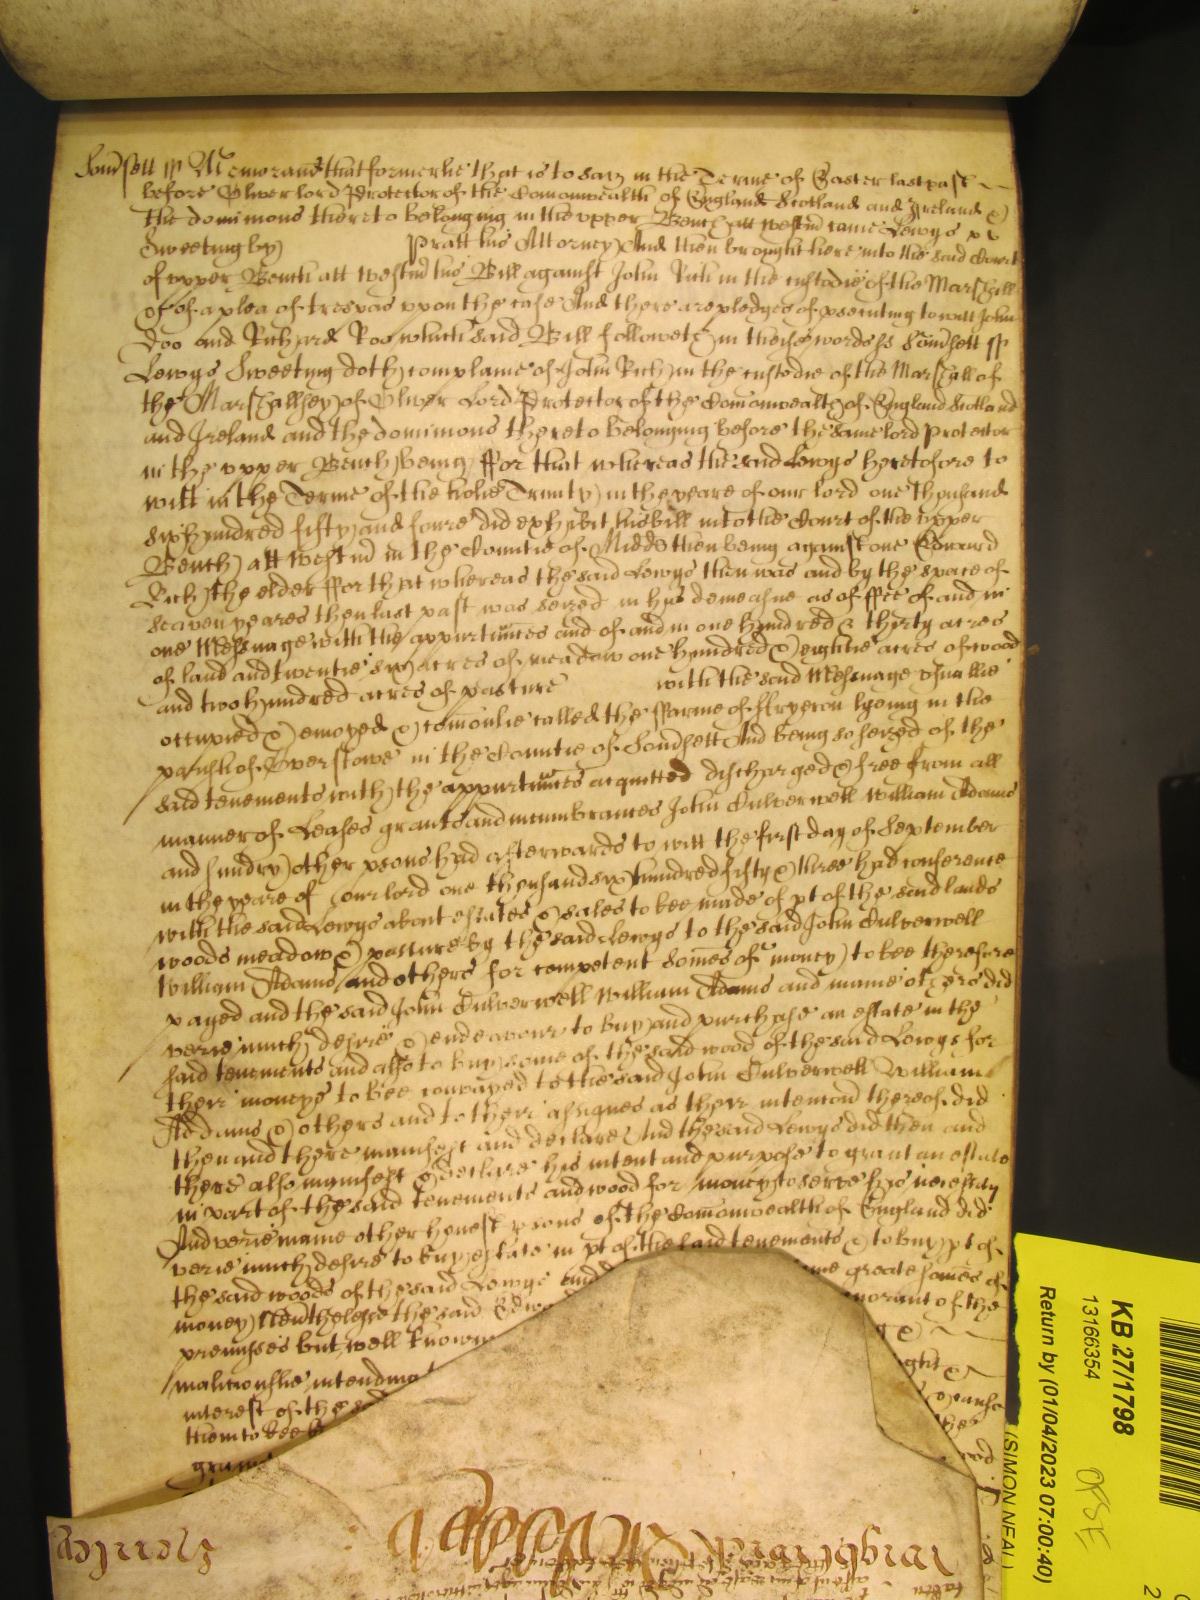 Som̃sett ss Memorand that formerlie that is to say in the Terme of Easter last past
before Oliver lord Protector of the Com̃onwealth of England Scotland and Ireland &
the dominions thereto belonging in the upper Bench att Westm̃ came Lewys
Sweeting by Pratt his Attorney And then brought here into the said Court
of upper Bench att Westm̃ his Bill against John Rich in the custodie of the Marshall
&c of a plea of trespas upon the case And there are pledges of psecuting to witt John
Doo and Richard Roo which said Bill followeth in theise words ss Som̃sett ss
Lewys Sweeting doth complaine of John Rich in the custodie of the Marshall of
the Marshallsey of Oliver Lord Protector of the Com̃onwealth of England Scotland
and Ireland and the dominions thereto belonging before the same lord Protector
in the upper Bench being ffor that whereas the said Lewys heretofore to
witt in the Terme of the holie Trinity in the yeare of our lord one thousand
six hundred fifty and foure did exhibit his bill into the Court of the upper
Bench att Westm̃ in the Countie of Midds then being against one Edward
Rich the elder ffor that whereas the said Lewys then was and by the space of
seaven yeares then last past was seized in his demeasne as of ffee of and in
one Messuage with the appurtun̄ces and of and in one hundred & thirty acres
of land and twentie six acres of meadow one hundred & eightie acres of wood
and two hundred acres of pasture with the said Messuage usuallie
occupied & enioyed & com̃onlie called the ffarme of lyeing in the
parish of Overstowe in the Countie of Som̃sett And being so seized of the
said tenements with the appurtun̄ces acquitted discharged & free from all
manner of Leases grants and incumbrances John Culverwell William Adams
and sundry other psons had afterwards to witt the first day of September
in the yeare of our lord one thousand six hundred fifty & three had conference
with the said Lewys about estates & sales to bee made of pt of the said lands
woods meadow & pasture by the said Lewys to the said John Culverwell
William Adams and others for competent som̃es of money to bee therefore
payed and the said John Culverwell William Adams and manie others did
verie much desire & endeavour to buy and purchase an estate in the
said tenements and also to buy some of the said wood of the said Lewys for
their moneys to bee conveyed to the said John Culverwell William
Addams & others and to their assignes as their intencon thereof did
then and there manifest and declare And the said Lewys did then and
there also manifest & declare his intent and purpose to grant an estate
in part of the said tenements and wood for money to serve his necessity
And verie manie other honest psons of the Com̃onwealth of England did
verie much desire to buy estate in pt of the said tenements & to buy pt of
the said woods of the said Lewys and me greate som̃es of
money Neūthelesse the said Edwa norant of the
premisses but well knowin
malitiouslie intendin ght &
interest of the sa
them to bee the
KB 27/1798
13166354
Return by (01/04/2023 07:00:40)
(SIMON NEAL)